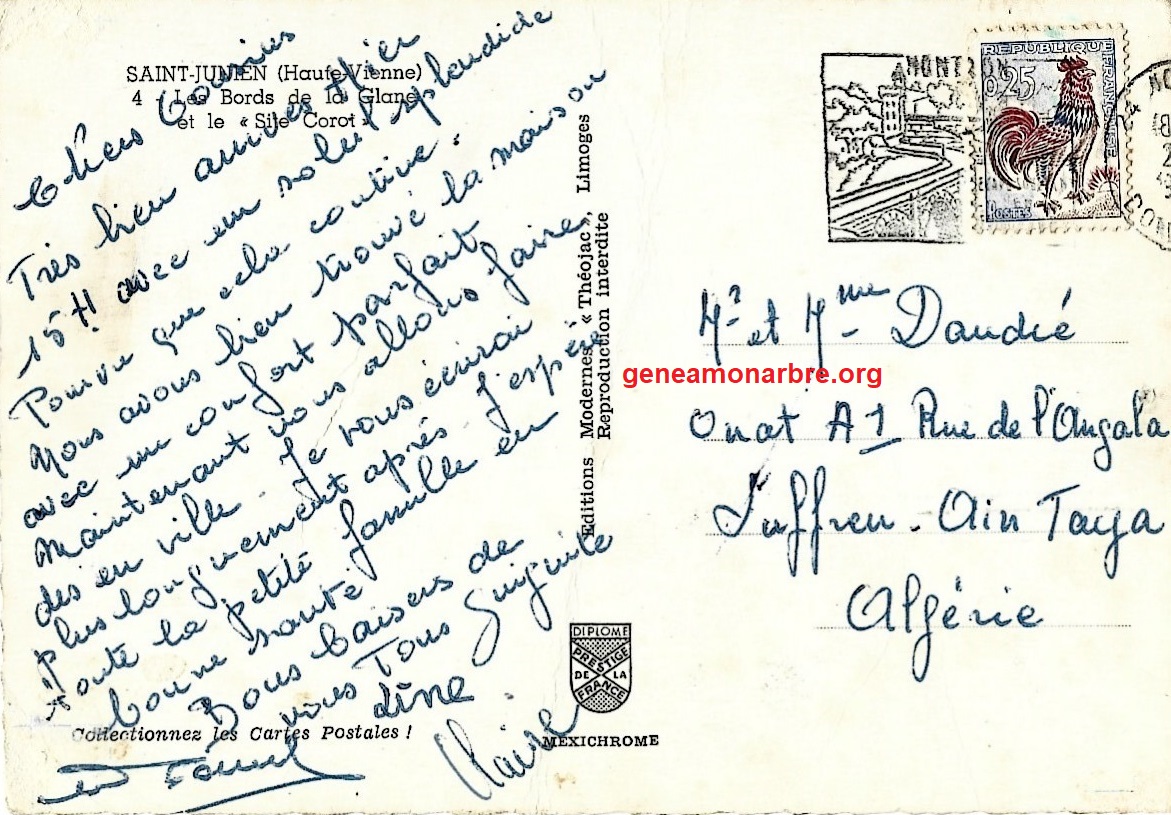 SAINT-JUNIEN (Haute-Vienne)
4 - Les Bords de la Glane
et le « Site Corot »
Chers Cousins
Très bien arrivés Hier
15 H avec un soleil splendide
Pourvu que cela continue.
Nous avons bien trouvé la maison
avec un confort parfait
Maintenant nous allons faire
des en ville. Je vous écrirai
plus longuement après. J'espère
toute la petite famille en
bonne santé
Bons baisers de
vous Tous Guiguite
Line
Claire
Collectionnez les Cartes Postales !
Editions Modernes « Théojac », Limoges
Reproduction interdite
DIPLOME
PRESTIGE
DE LA
FRANCE
MEXICHROME
NONTRON
REPUBLIQUE
FRANÇAISE
0,25
POSTES
Mr et Mme Daudié
geneamonarbre.org
Onat A1 Rue de l'Angala
Suffren. Ain Taya
Algérie